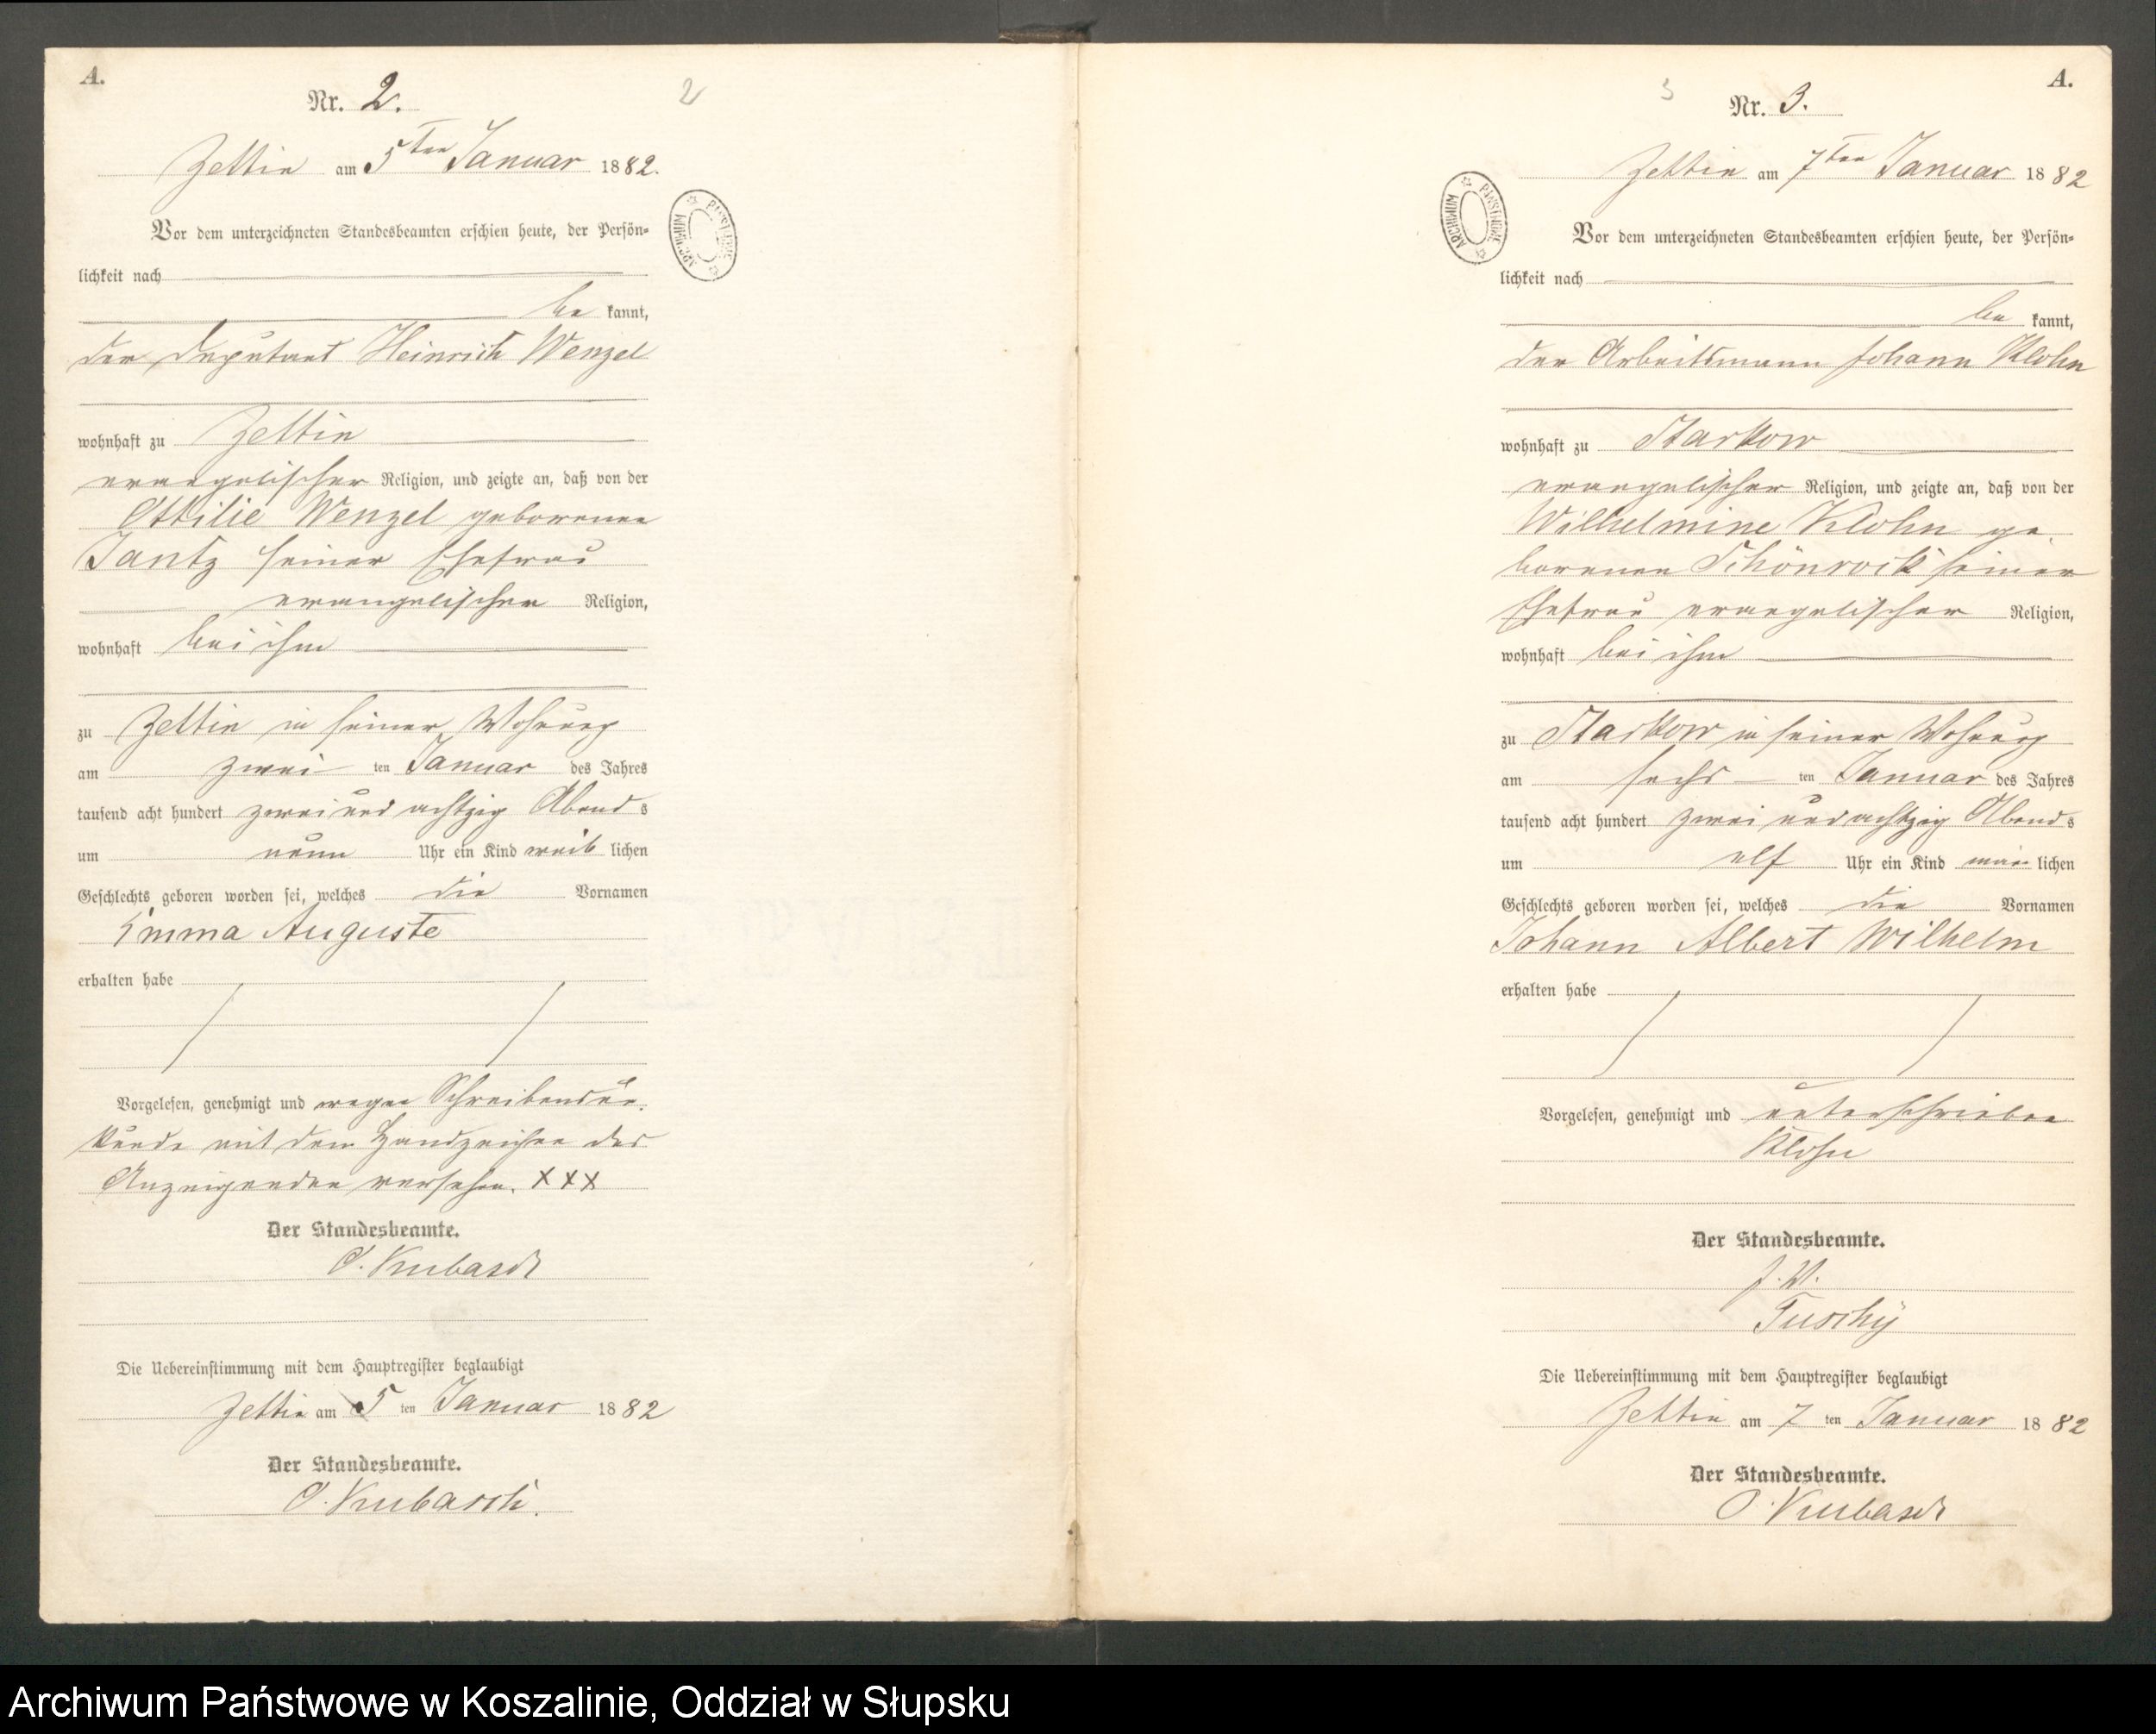 A.
Nr. 2.
2
Zettin am 5ten Januar 1882.
Vor dem unterzeichneten Standesbeamten erschien heute, der Persön-
lichkeit nach
be kannt,
der Deputant Heinrich Wenzel
wohnhaft zu Zettin
evangelischer Religion, und zeigte an, daß von der
Ottilie Wenzel geborenen
Jantz seiner Ehefrau
evangelischer Religion,
wohnhaft bei ihm
zu Zettin in seiner Wohnung
am zwei ten Januar des Jahres
tausend acht hundert zwei und achtzig Abend s
um neun Uhr ein Kind weib lichen
Geschlechts geboren worden sei, welches die Vornamen
Emma Auguste
erhalten habe
Vorgelesen, genehmigt und wegen Schreibensun-
kunde mit dem Handzeichen des
Anzeigenden versehen. XXX
Der Standesbeamte.
O. Kubasch
Die Uebereinstimmung mit dem Hauptregister beglaubigt
Zettin am 5 ten Januar 1882
Der Standesbeamte.
O. Kubasch.
ARCHIWUM PAŃSTWOWE
A.
3
Nr. 3.
Zettin am 7ten Januar 1882
Vor dem unterzeichneten Standesbeamten erschien heute, der Persön-
lichkeit nach
be kannt,
der Arbeitsmann Johann Klohn
wohnhaft zu Starkow
evangelischer Religion, und zeigte an, daß von der
Wilhelmine Klohn ge-
borenen Schönrock seiner
Ehefrau evangelischer Religion,
wohnhaft bei ihm
zu Starkow in seiner Wohnung
am sechs ten Januar des Jahres
tausend acht hundert zwei und achtzig Abend s
um elf Uhr ein Kind män lichen
Geschlechts geboren worden sei, welches die Vornamen
Johann Albert Wilhelm
erhalten habe
Vorgelesen, genehmigt und unterschrieben
Klohn
Der Standesbeamte.
J. V.
Tuschy
Die Uebereinstimmung mit dem Hauptregister beglaubigt
Zettin am 7 ten Januar 1882
Der Standesbeamte.
O. Kubasch
ARCHIWUM PAŃSTWOWE
Archiwum Państwowe w Koszalinie, Oddział w Słupsku